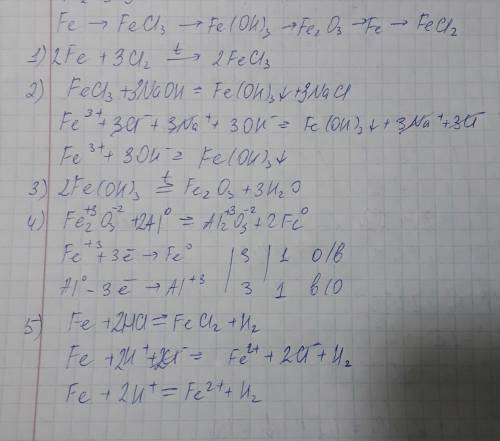 Fe → FeCl3 → Fe(OH)3 → Fe2O3 → Fe → FeCl2
1) 2Fe + 3Cl2 →t 2FeCl3
2) FeCl3 + 3NaOH = Fe(OH)3↓ + 3NaCl
Fe3+ + 3Cl- + 3Na+ + 3OH- = Fe(OH)3↓ + 3Na+ + 3Cl-
Fe3+ + 3OH- = Fe(OH)3↓
3) 2Fe(OH)3 =t Fe2O3 + 3H2O
4) Fe2+3O3-2 + 2Al0 = Al2+3O3-2 + 2Fe0
Fe+3 + 3e- → Fe0 | 3 | 1 о/в
Al0 - 3e- → Al+3 | 3 | 1 в/о
5) Fe + 2HCl = FeCl2 + H2
Fe + 2H+ + 2Cl- = Fe2+ + 2Cl- + H2
Fe + 2H+ = Fe2+ + H2